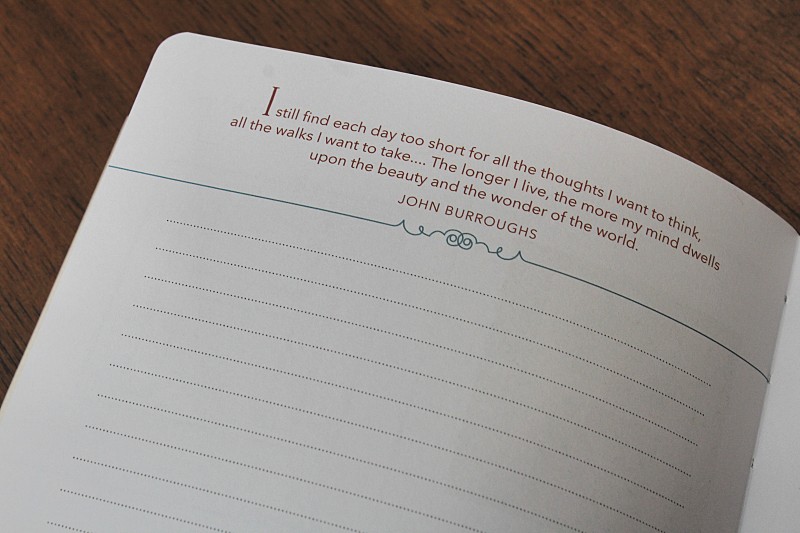 I still find each day too short for all the thoughts I want to think,
all the walks I want to take.... The longer I live, the more my mind dwells
upon the beauty and the wonder of the world.
JOHN BURROUGHS